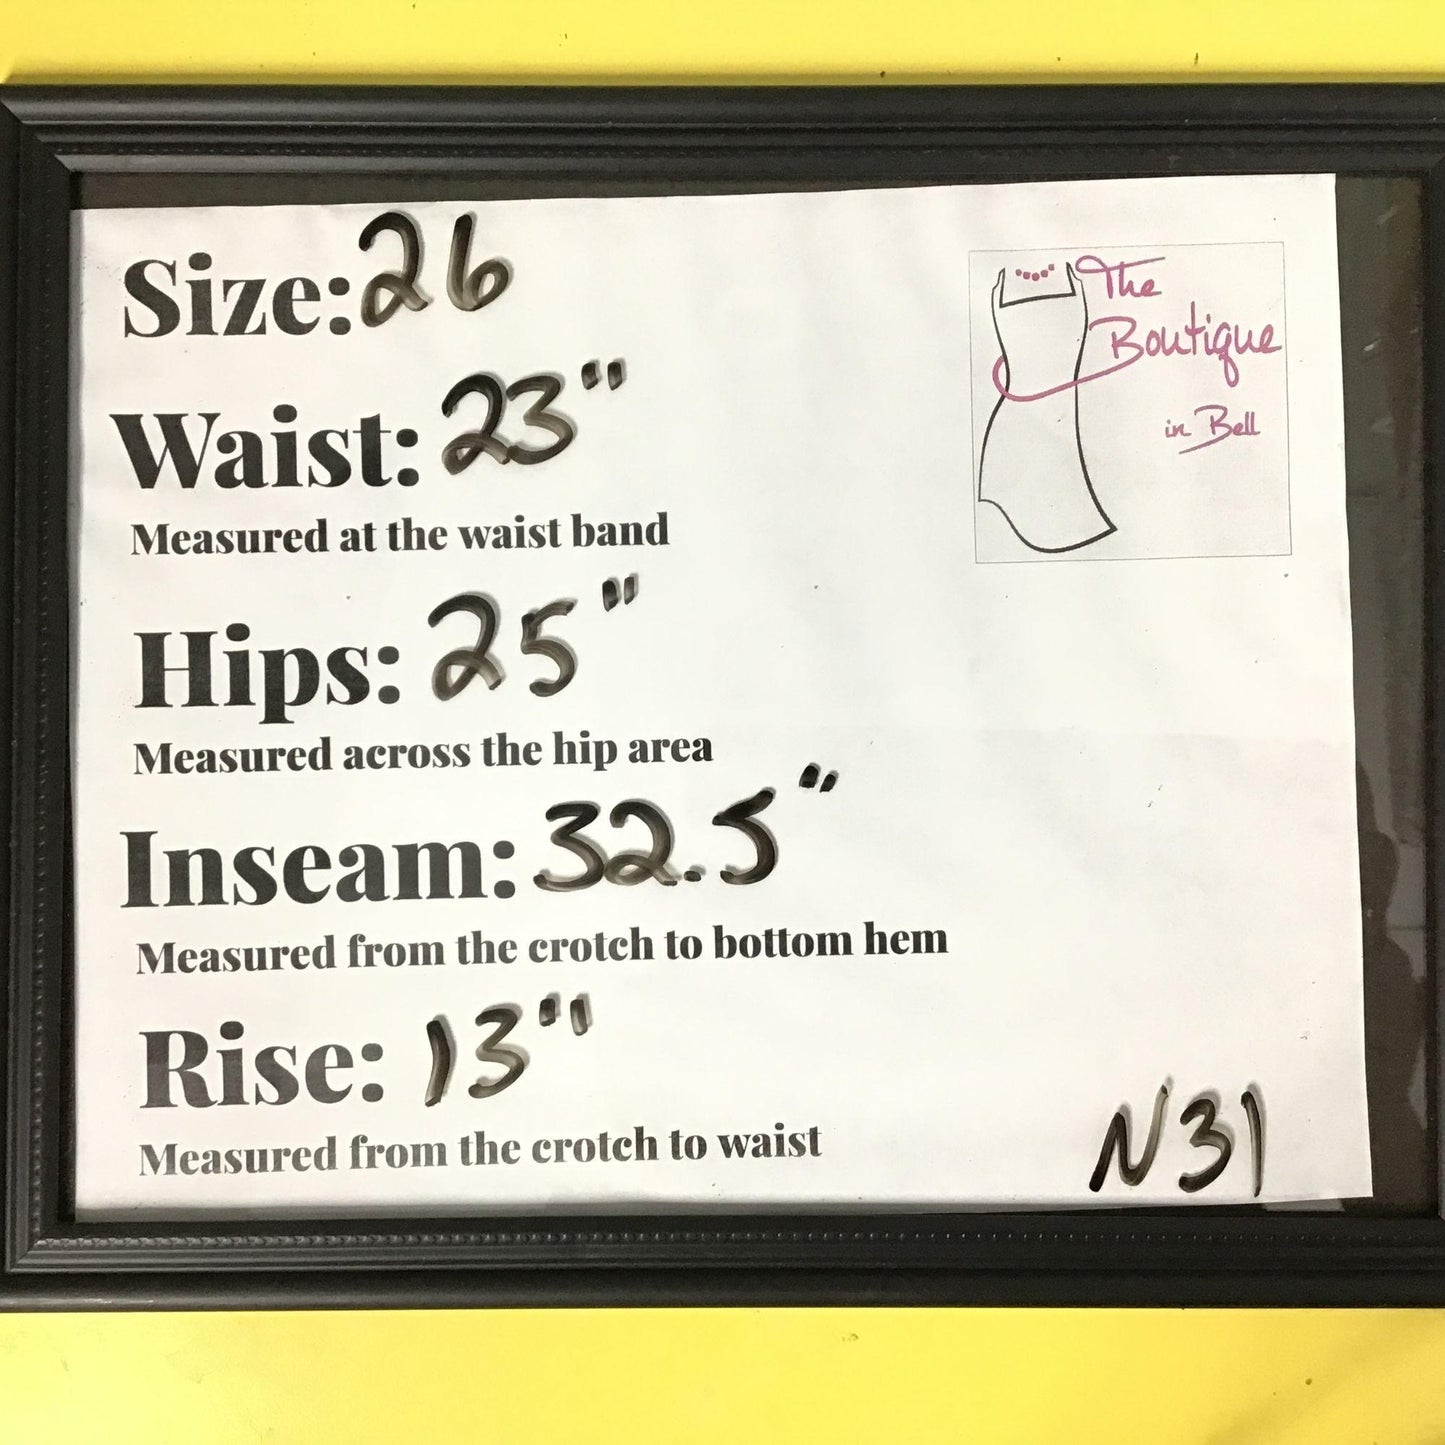 Size: 26
The
Boutique
in Bell
Waist: 23"
Measured at the waist band
Hips: 25"
Measured across the hip area
Inseam: 32.5"
Measured from the crotch to bottom hem
Rise: 13"
Measured from the crotch to waist
N31